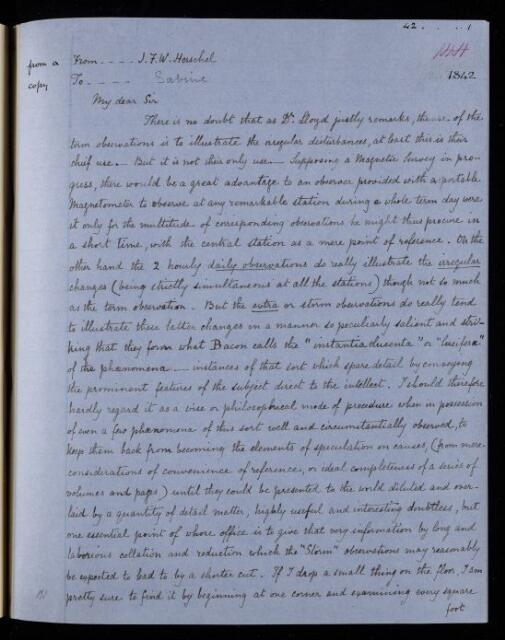 42 . . . . 1
from a From - - - - J.F.W. Herschel
copy To - - - - Sabine 1842
My dear Sir
There is no doubt that as Dr. Lloyd justly remarks, the use of the
term observations is to illustrate the irregular disturbances, at least this is their
chief use – But it is not their only use – Supposing a Magnetic Survey in pro-
gress, there would be a great advantage to an observer provided with a portable
Magnetometer to observe at any remarkable station during a whole term day were
it only for the multitude of corresponding observations he might thus procure in
a short time, with the central station as a mere point of reference. On the
other hand the 2 hourly daily observations do really illustrate the irregular
changes (being strictly simultaneous at all the stations) though not so much
as the term observation. But the extra or storm observations do really tend
to illustrate these latter changes in a manner so peculiarly salient and stri-
king that they form what Bacon calls the "instantia" or "lucifera"
of the phænomena – instances of that sort which spare detail by conveying
the prominent features of the subject direct to the intellect. I should therefore
hardly regard it as a wise or philosophical mode of procedure when in possession
of even a few phænomena of this sort well and circumstantially observed, to
keep them back from becoming the elements of speculation on causes, (from mere
considerations of convenience of reference, or ideal completeness of a series of
volumes and pages) until they could be presented to the world diluted and over-
laid by a quantity of detail matter, highly useful and interesting doubtless, but
one essential point of whose office is to give that very information by long and
laborious collation and reduction which the "Storm" observations may reasonably
be expected to lead to by a shorter cut. If I drop a small thing on the floor, I am
pretty sure to find it by beginning at one corner and examining every square
foot